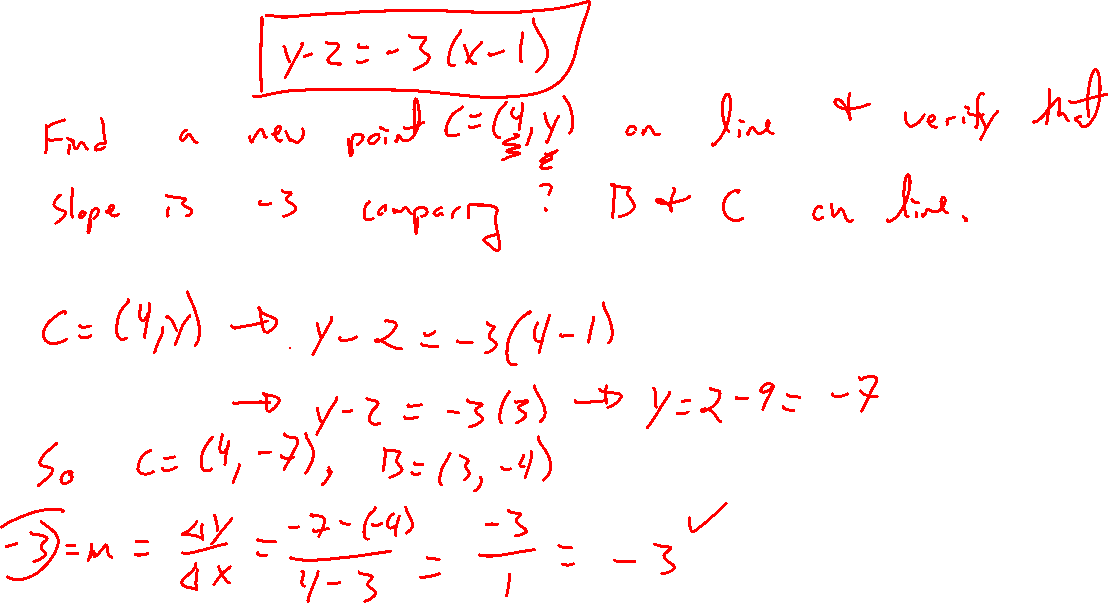 y-2=-3(x-1)
Find a new point C=(4,y) on line & verify that
slope is -3 comparing ? B & C on line.
C=(4,y) → y-2=-3(4-1)
→ y-2=-3(3) → y=2-9=-7
So C=(4,-7), B=(3,-4)
-3=m=Δy/Δx=(-7-(-4))/(4-3)=-3/1=-3 ✓